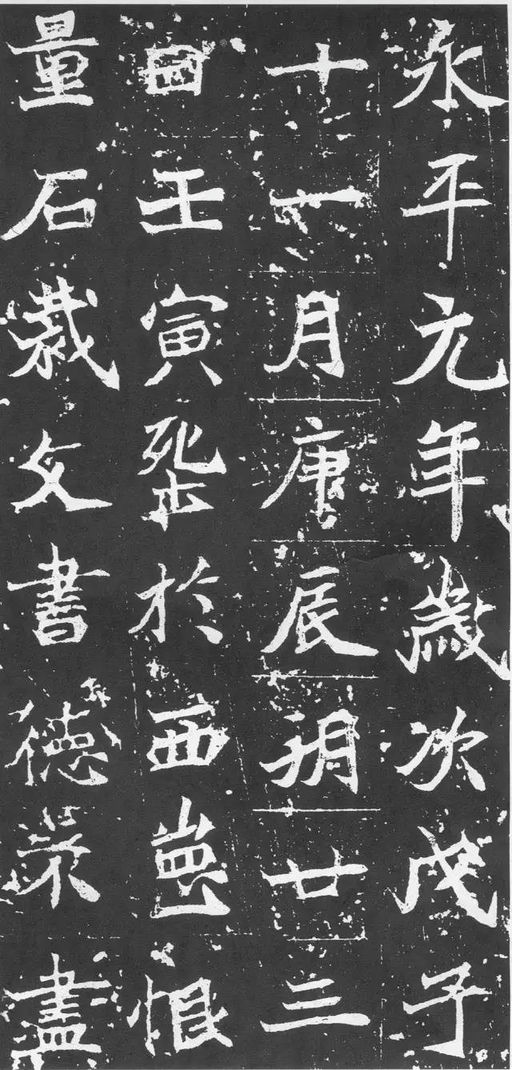 永平元年歲次戊子
十一月庚辰朔廿三
日壬寅塟於西恨
量石裁文書德盡